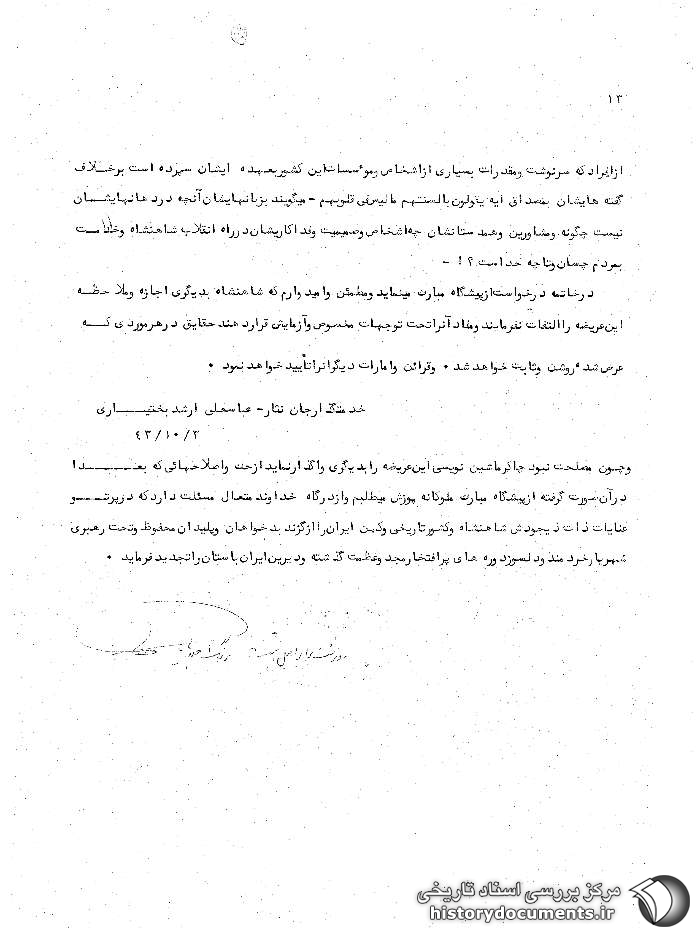 ۱۳
ازافراد که سرنوشت ومقدرات بسیاری ازاشخاص وموسسات این کشوربعهده ایشان سپرده است برخلاف
گفته هایشان بمصداق آیه یقولون بالسنتهم مالیس فی قلوبهم - میگویند بزبانهایشان آنچه درد هانهایشان
نیست چگونه ومشاورین وهمد ستانشان چه اشخاص وصمیمیت وفد اکاریشان درراه انقلاب شاهنشاه وخدمت
بمردم چسان وتاچه حد است ؟ ! -
درخاتمه درخواست ازپیشگاه مبارک مینماید ومطمئن وامید وارم که شاهنشاه بدیگری اجازه وملاحظه
این عریضه را التفات نفرمایند ومفاد آنراتحت توجهات مخصوص وآزمایش قرارد هند حقایق درهرموردی که
عرض شد ه روشن وثابت خواهد شد ۰ وقرائن وامارات دیگرآنراتأیید خواهد نمود ۰
خد متگذارجان نثار- عباسعلی ارشد بختیاری
۴۳/۱۰/۲
وچون مصلحت نبود چاکرماشین نویسی این عریضه رابدیگری واگذارنماید ازحک واصلاحهائی که بعدا
درآن صورت گرفته ازپیشگاه مبارک ملوکانه پوزش میطلبم وازدرگاه خداوند متعال مسئلت دارد که درپرتو
عنایات ذات ذیجودش شاهنشاه وکشورتاریخی وکهن ایران راازگزند بد خواهان وپلیدان محفوظ وتحت رهبری
شهریارخرد مند ودلسوزدوره های پرافتخارمجد وعظمت گذشته ودیرین ایران باستان راتجدید فرماید ۰
مرکز بررسی اسناد تاریخی
historydocuments.ir